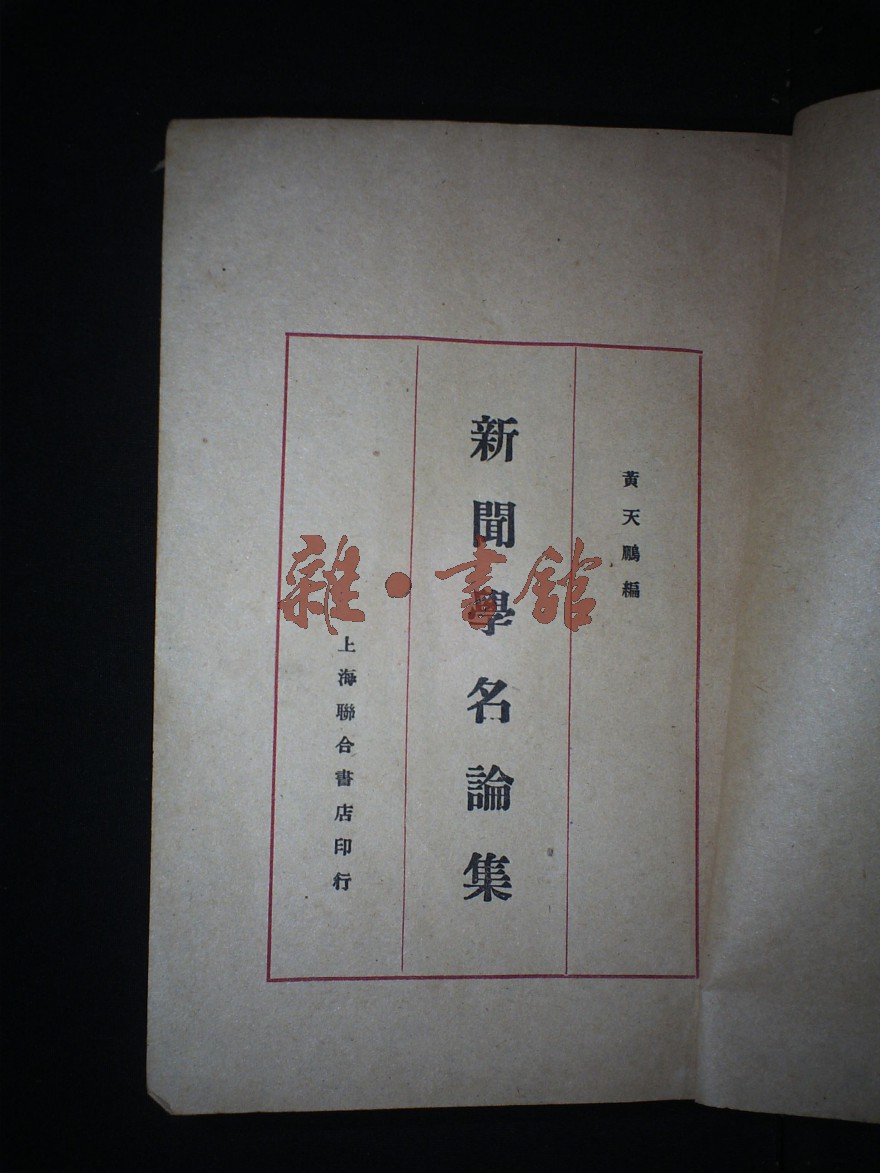 黃天鵬編
新聞學名論集
上海聯合書店印行
雜·書館